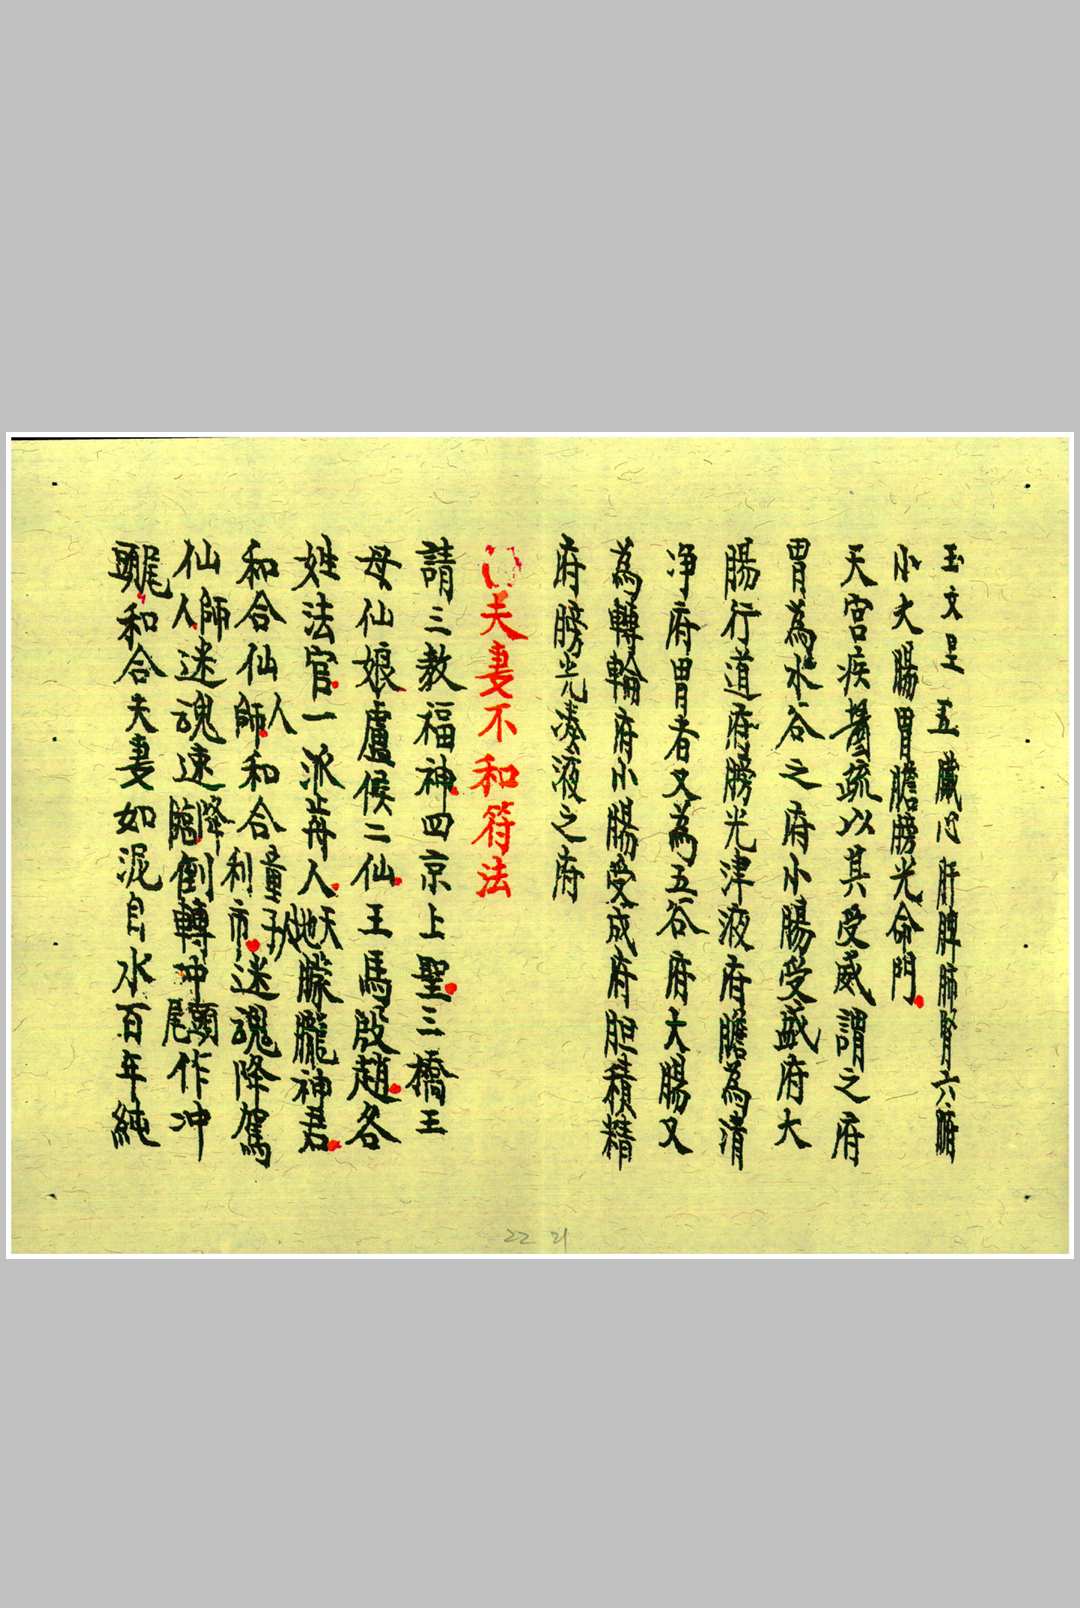 玉文呈 五臟心肝脾肺腎六腑
小大腸胃膽膀光命門
天宮疾醫疏以其受威謂之府
胃為水谷之府小腸受盛府大
腸行道府膀光津液府膽為清
净府胃者又為五谷府大腸又
為轉輪府小腸受成府胆積精
府膀光湊液之府
夫妻不和符法
請三教福神四京上聖三橋王
母仙娘盧候二仙王馬殷趙各
姓法官一派苒人天地朦朧神君
和合仙師人和合利市童子迷魂降駕
仙人師迷魂速臨降倒轉冲頭尾作冲
頭尾和合夫妻如泥自水百年純
22 21